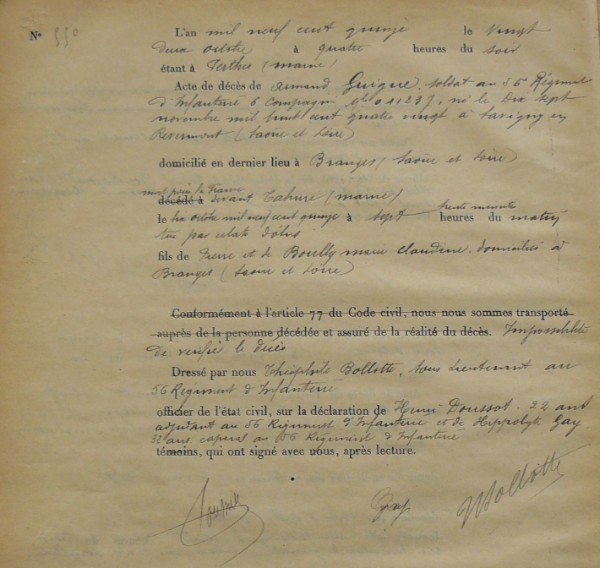 N° 550
L'an mil neuf cent quinze le vingt
deux octobre à quatre heures du soir
étant à Perthes (marne)
Acte de décès de Guigue, soldat au 56 Régiment
d'Infanterie 6 Compagnie né le Dix Sept
novembre mil huit cent quatre vingt à Savigny en
Revermont (Saône et Loire)
domicilié en dernier lieu à Branges (Saône et Loire)
mort pour la France
décédé à devant Tahure (marne)
le octobre mil neuf cent quinze à sept trente minutes heures du matin
tué par éclats d'obus
fils de Pierre et de Bouilly marie claudine, domiciliés à
Branges (Saône et Loire)
Conformément à l'article 77 du Code civil, nous nous sommes transporté
auprès de la personne décédée et assuré de la réalité du décès. Impossibilité
de vérifié le décès
Dressé par nous Théophile Bollotte, Sous lieutenant au
56 Régiment d'Infanterie
officier de l'état civil, sur la déclaration de Henri Doussot - 22 ans
adjudant au 56 Régiment d'Infanterie et de Hippolyte Gay
32 ans caporal au 56 Régiment d'Infanterie
témoins, qui ont signé avec nous, après lecture.
Doussot Gay Bollotte